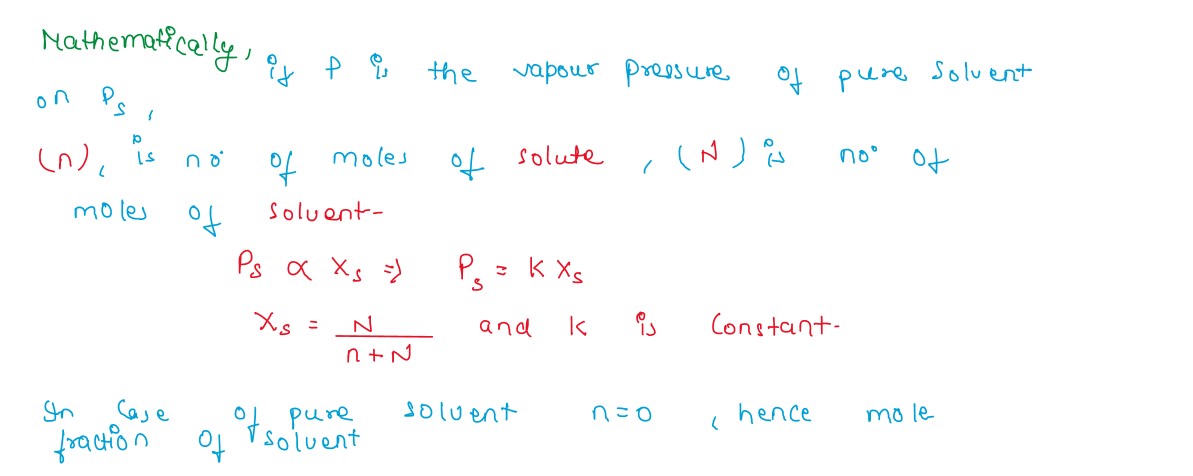 Mathematically, if P is the vapour pressure of pure solvent
on Ps,
(n), is no. of moles of solute, (N) is no. of
moles of solvent-
Ps ∝ Xs ⇒ Ps = K Xs
Xs = N / n+N and K is Constant.
In Case of pure solvent n=0, hence mole
fraction of solvent